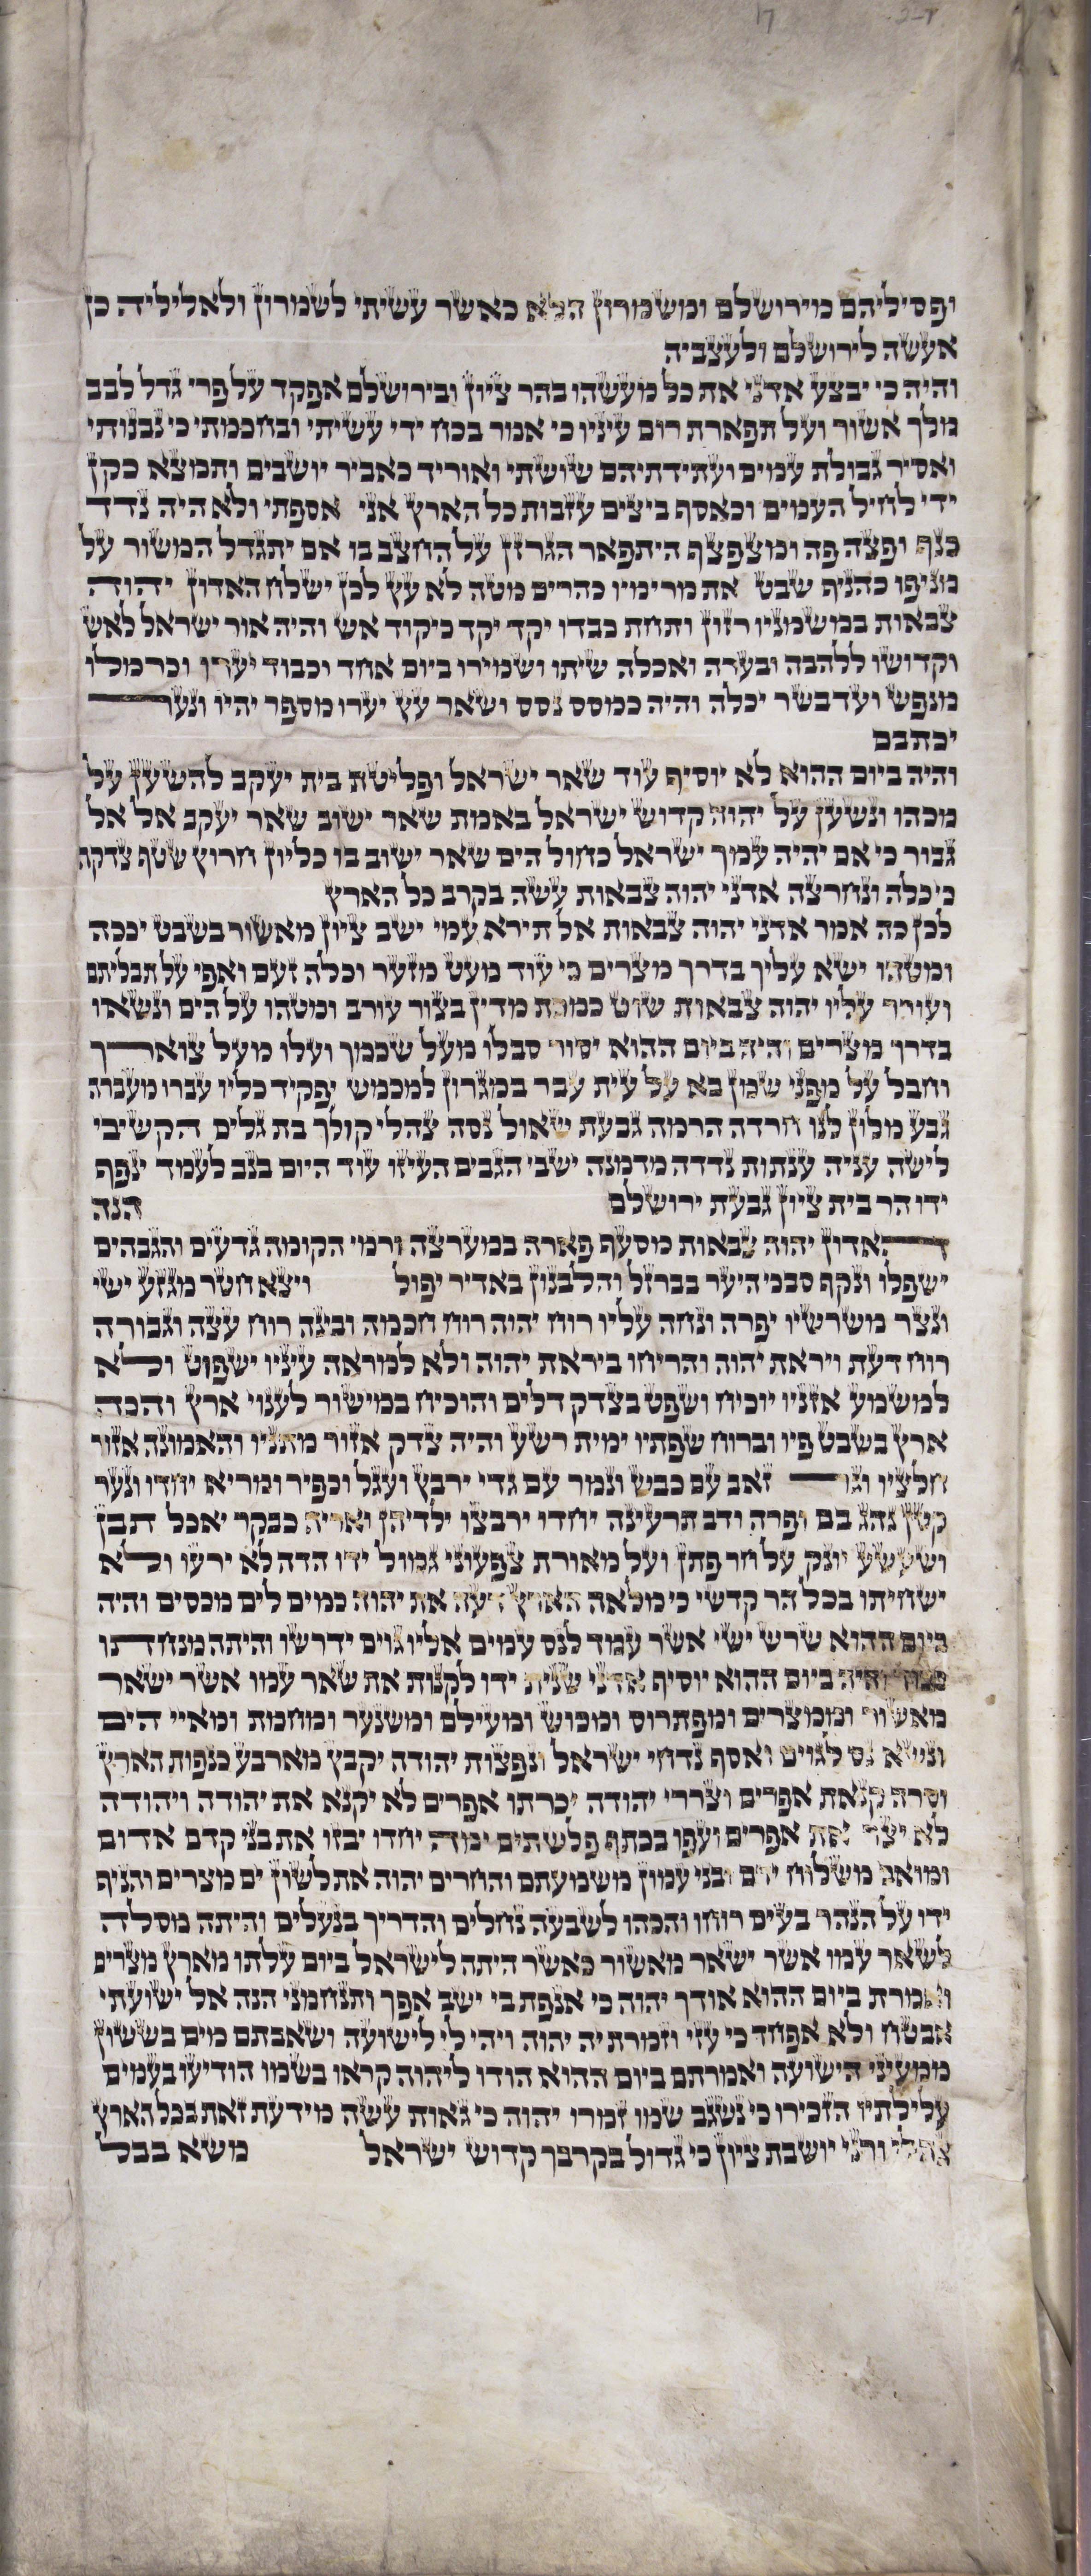 ופסיליהם מירושלם ומשמרון הלא כאשר עשיתי לשמרון ולאליליה כן
אעשה לירושלם ולעצביה
והיה כי יבצע אדני את כל מעשהו בהר ציון ובירושלם אפקד על פרי גדל לבב
מלך אשור ועל תפארת רום עיניו כי אמר בכח ידי עשיתי ובחכמתי כי נבנותי
ואסיר גבולת עמים ועתידתיהם שושתי ואוריד כאביר יושבים ותמצא כקן
ידי לחיל העמים וכאסף ביצים עזבות כל הארץ אני אספתי ולא היה נדד
כנף ופצה פה ומצפצף היתפאר הגרזן על החצב בו אם יתגדל המשור על
מניפו כהניף שבט את מרימיו כהרים מטה לא עץ לכן ישלח האדון יהוה
צבאות במשמניו רזון ותחת כבדו יקד יקד כיקוד אש והיה אור ישראל לאש
וקדושו ללהבה ובערה ואכלה שיתו ושמירו ביום אחד וכבוד יערו וכרמלו
מנפש ועד בשר יכלה והיה כמסס נסס ושאר עץ יערו מספר יהיו ונער
יכתבם
והיה ביום ההוא לא יוסיף עוד שאר ישראל ופליטת בית יעקב להשען על
מכהו ונשען על יהוה קדוש ישראל באמת שאר ישוב שאר יעקב אל אל
גבור כי אם יהיה עמך ישראל כחול הים שאר ישוב בו כליון חרוץ שטף צדקה
כי כלה ונחרצה אדני יהוה צבאות עשה בקרב כל הארץ
לכן כה אמר אדני יהוה צבאות אל תירא עמי ישב ציון מאשור בשבט יככה
ומטהו ישא עליך בדרך מצרים כי עוד מעט מזער וכלה זעם ואפי על תבליתם
ועורר עליו יהוה צבאות שוט כמכת מדין בצור עורב ומטהו על הים ונשאו
בדרך מצרים והיה ביום ההוא יסור סבלו מעל שכמך ועלו מעל צוארך
וחבל על מפני שמן בא על עית עבר במגרון למכמש יפקיד כליו עברו מעברה
גבע מלון לנו חרדה הרמה גבעת שאול נסה צהלי קולך בת גלים הקשיבי
לישה עניה ענתות נדדה מדמנה ישבי הגבים העיזו עוד היום בנב לעמד ינפף
ידו הר בית ציון גבעת ירושלם הנה
האדון יהוה צבאות מסעף פארה במערצה ורמי הקומה גדעים והגבהים
ישפלו ונקף סבכי היער בברזל והלבנון באדיר יפול ויצא חטר מגזע ישי
ונצר משרשיו יפרה ונחה עליו רוח יהוה רוח חכמה ובינה רוח עצה וגבורה
רוח דעת ויראת יהוה והריחו ביראת יהוה ולא למראה עיניו ישפוט ולא
למשמע אזניו יוכיח ושפט בצדק דלים והוכיח במישור לענוי ארץ והכה
ארץ בשבט פיו וברוח שפתיו ימית רשע והיה צדק אזור מתניו והאמונה אזור
חלציו וגר זאב עם כבש ונמר עם גדי ירבץ ועגל וכפיר ומריא יחדו ונער
קטן נהג בם ופרה ודב תרעינה יחדו ירבצו ילדיהן ואריה כבקר יאכל תבן
ושעשע יונק על חר פתן ועל מאורת צפעוני גמול ידו הדה לא ירעו ולא
ישחיתו בכל הר קדשי כי מלאה הארץ דעה את יהוה כמים לים מכסים והיה
ביום ההוא שרש ישי אשר עמד לנס עמים אליו גוים ידרשו והיתה מנחתו
כבוד והיה ביום ההוא יוסיף אדני שנית ידו לקנות את שאר עמו אשר ישאר
מאשור וממצרים ומפתרוס ומכוש ומעילם ומשנער ומחמת ומאיי הים
ונשא נס לגוים ואסף נדחי ישראל ונפצות יהודה יקבץ מארבע כנפות הארץ
וסרה קנאת אפרים וצררי יהודה יכרתו אפרים לא יקנא את יהודה ויהודה
לא יצר את אפרים ועפו בכתף פלשתים ימה יחדו יבזו את בני קדם אדום
ומואב משלוח ידם ובני עמון משמעתם והחרים יהוה את לשון ים מצרים והניף
ידו על הנהר בעים רוחו והכהו לשבעה נחלים והדריך בנעלים והיתה מסלה
לשאר עמו אשר ישאר מאשור כאשר היתה לישראל ביום עלתו מארץ מצרים
ואמרת ביום ההוא אודך יהוה כי אנפת בי ישב אפך ותנחמני הנה אל ישועתי
אבטח ולא אפחד כי עזי וזמרת יה יהוה ויהי לי לישועה ושאבתם מים בששון
ממעיני הישועה ואמרתם ביום ההוא הודו ליהוה קראו בשמו הודיעו בעמים
עלילתיו הזכירו כי נשגב שמו זמרו יהוה כי גאות עשה מידעת זאת בכל הארץ
צהלי ורני יושבת ציון כי גדול בקרבך קדוש ישראל משא בבל